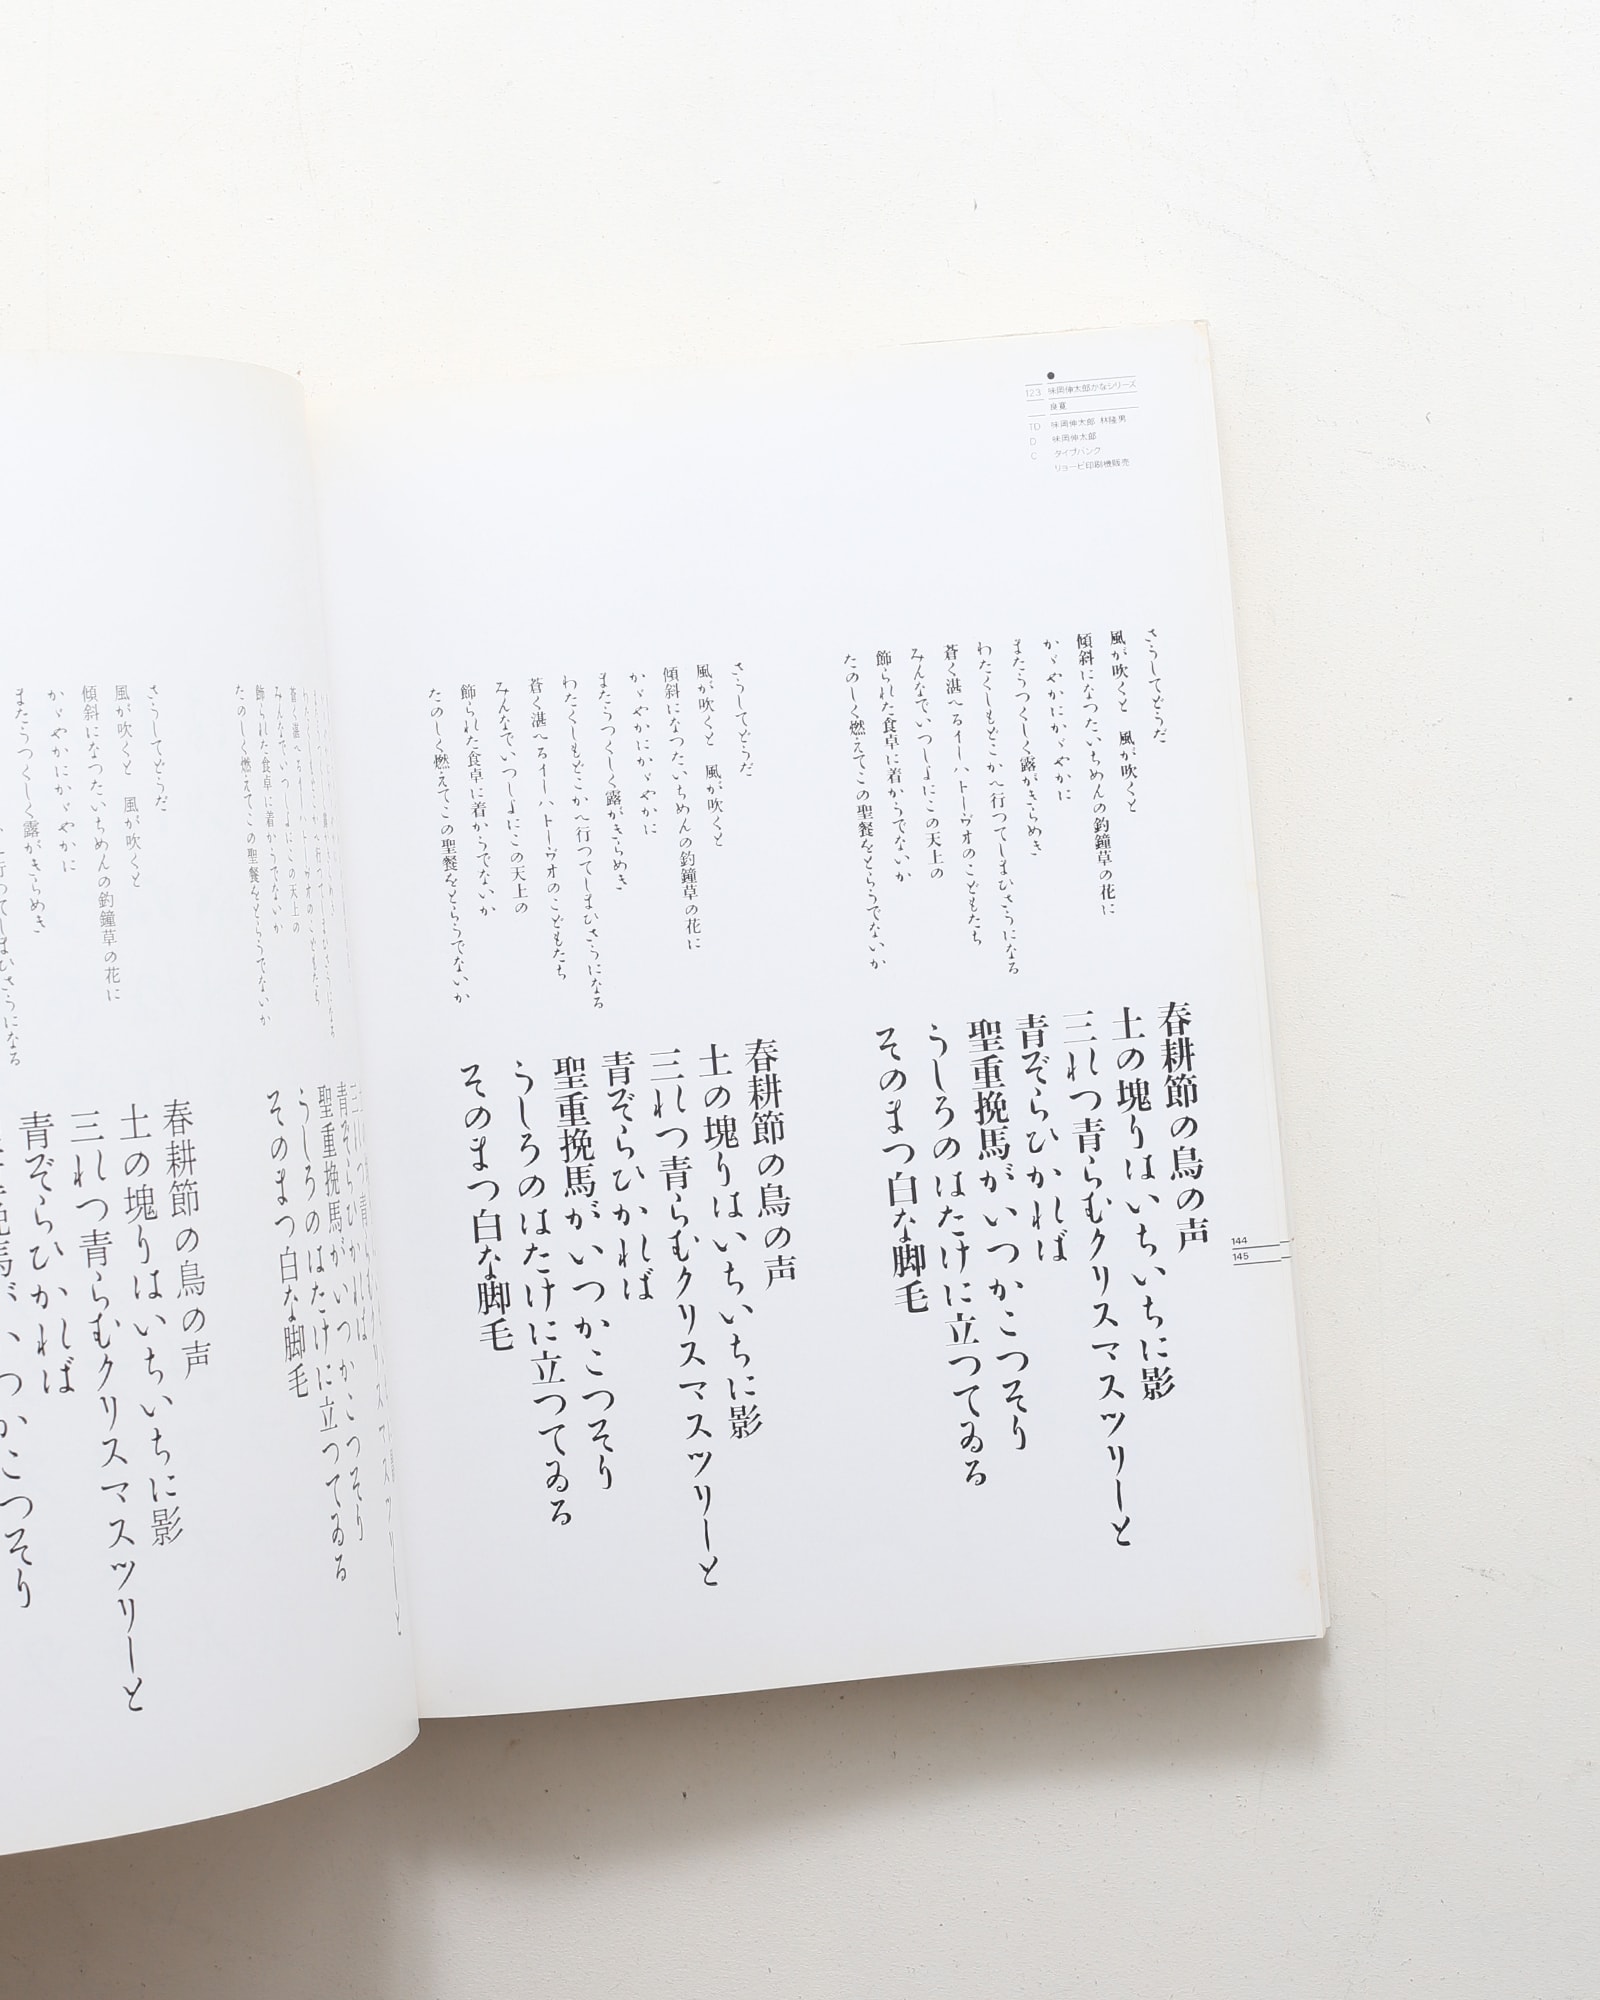 123 味岡伸太郎かなシリーズ
良寛
TD 味岡伸太郎 林隆男
D 味岡伸太郎
C タイプバンク
リョービ印刷機販売
さうしてどうだ
風が吹くと　風が吹くと
傾斜になつたいちめんの釣鐘草の花に
かゞやかにかゞやかに
またうつくしく露がきらめき
わたくしもどこかへ行つてしまひさうになる
蒼く湛へるイーハトーヴオのこどもたち
みんなでいつしよにこの天上の
飾られた食卓に着かうでないか
たのしく燃えてこの聖餐をとらうでないか
春耕節の鳥の声
土の塊りはいちいちに影
三れつ青らむクリスマスツリーと
青ぞらひかれば
聖重挽馬がいつかこつそり
うしろのはたけに立つてゐる
そのまつ白な脚毛
144
145
さうしてどうだ
風が吹くと　風が吹くと
傾斜になつたいちめんの釣鐘草の花に
かゞやかにかゞやかに
またうつくしく露がきらめき
わたくしもどこかへ行つてしまひさうになる
蒼く湛へるイーハトーヴオのこどもたち
みんなでいつしよにこの天上の
飾られた食卓に着かうでないか
たのしく燃えてこの聖餐をとらうでないか
春耕節の鳥の声
土の塊りはいちいちに影
三れつ青らむクリスマスツリーと
青ぞらひかれば
聖重挽馬がいつかこつそり
うしろのはたけに立つてゐる
そのまつ白な脚毛
わたくしもどこかへ行つてしまひさうになる
蒼く湛へるイーハトーヴオのこどもたち
みんなでいつしよにこの天上の
飾られた食卓に着かうでないか
たのしく燃えてこの聖餐をとらうでないか
青ぞらひかれば
聖重挽馬がいつかこつそり
うしろのはたけに立つてゐる
そのまつ白な脚毛
さうしてどうだ
風が吹くと　風が吹くと
傾斜になつたいちめんの釣鐘草の花に
かゞやかにかゞやかに
またうつくしく露がきらめき
行つてしまひさうになる
春耕節の鳥の声
土の塊りはいちいちに影
三れつ青らむクリスマスツリーと
青ぞらひかれば
挽馬がいつかこつそり